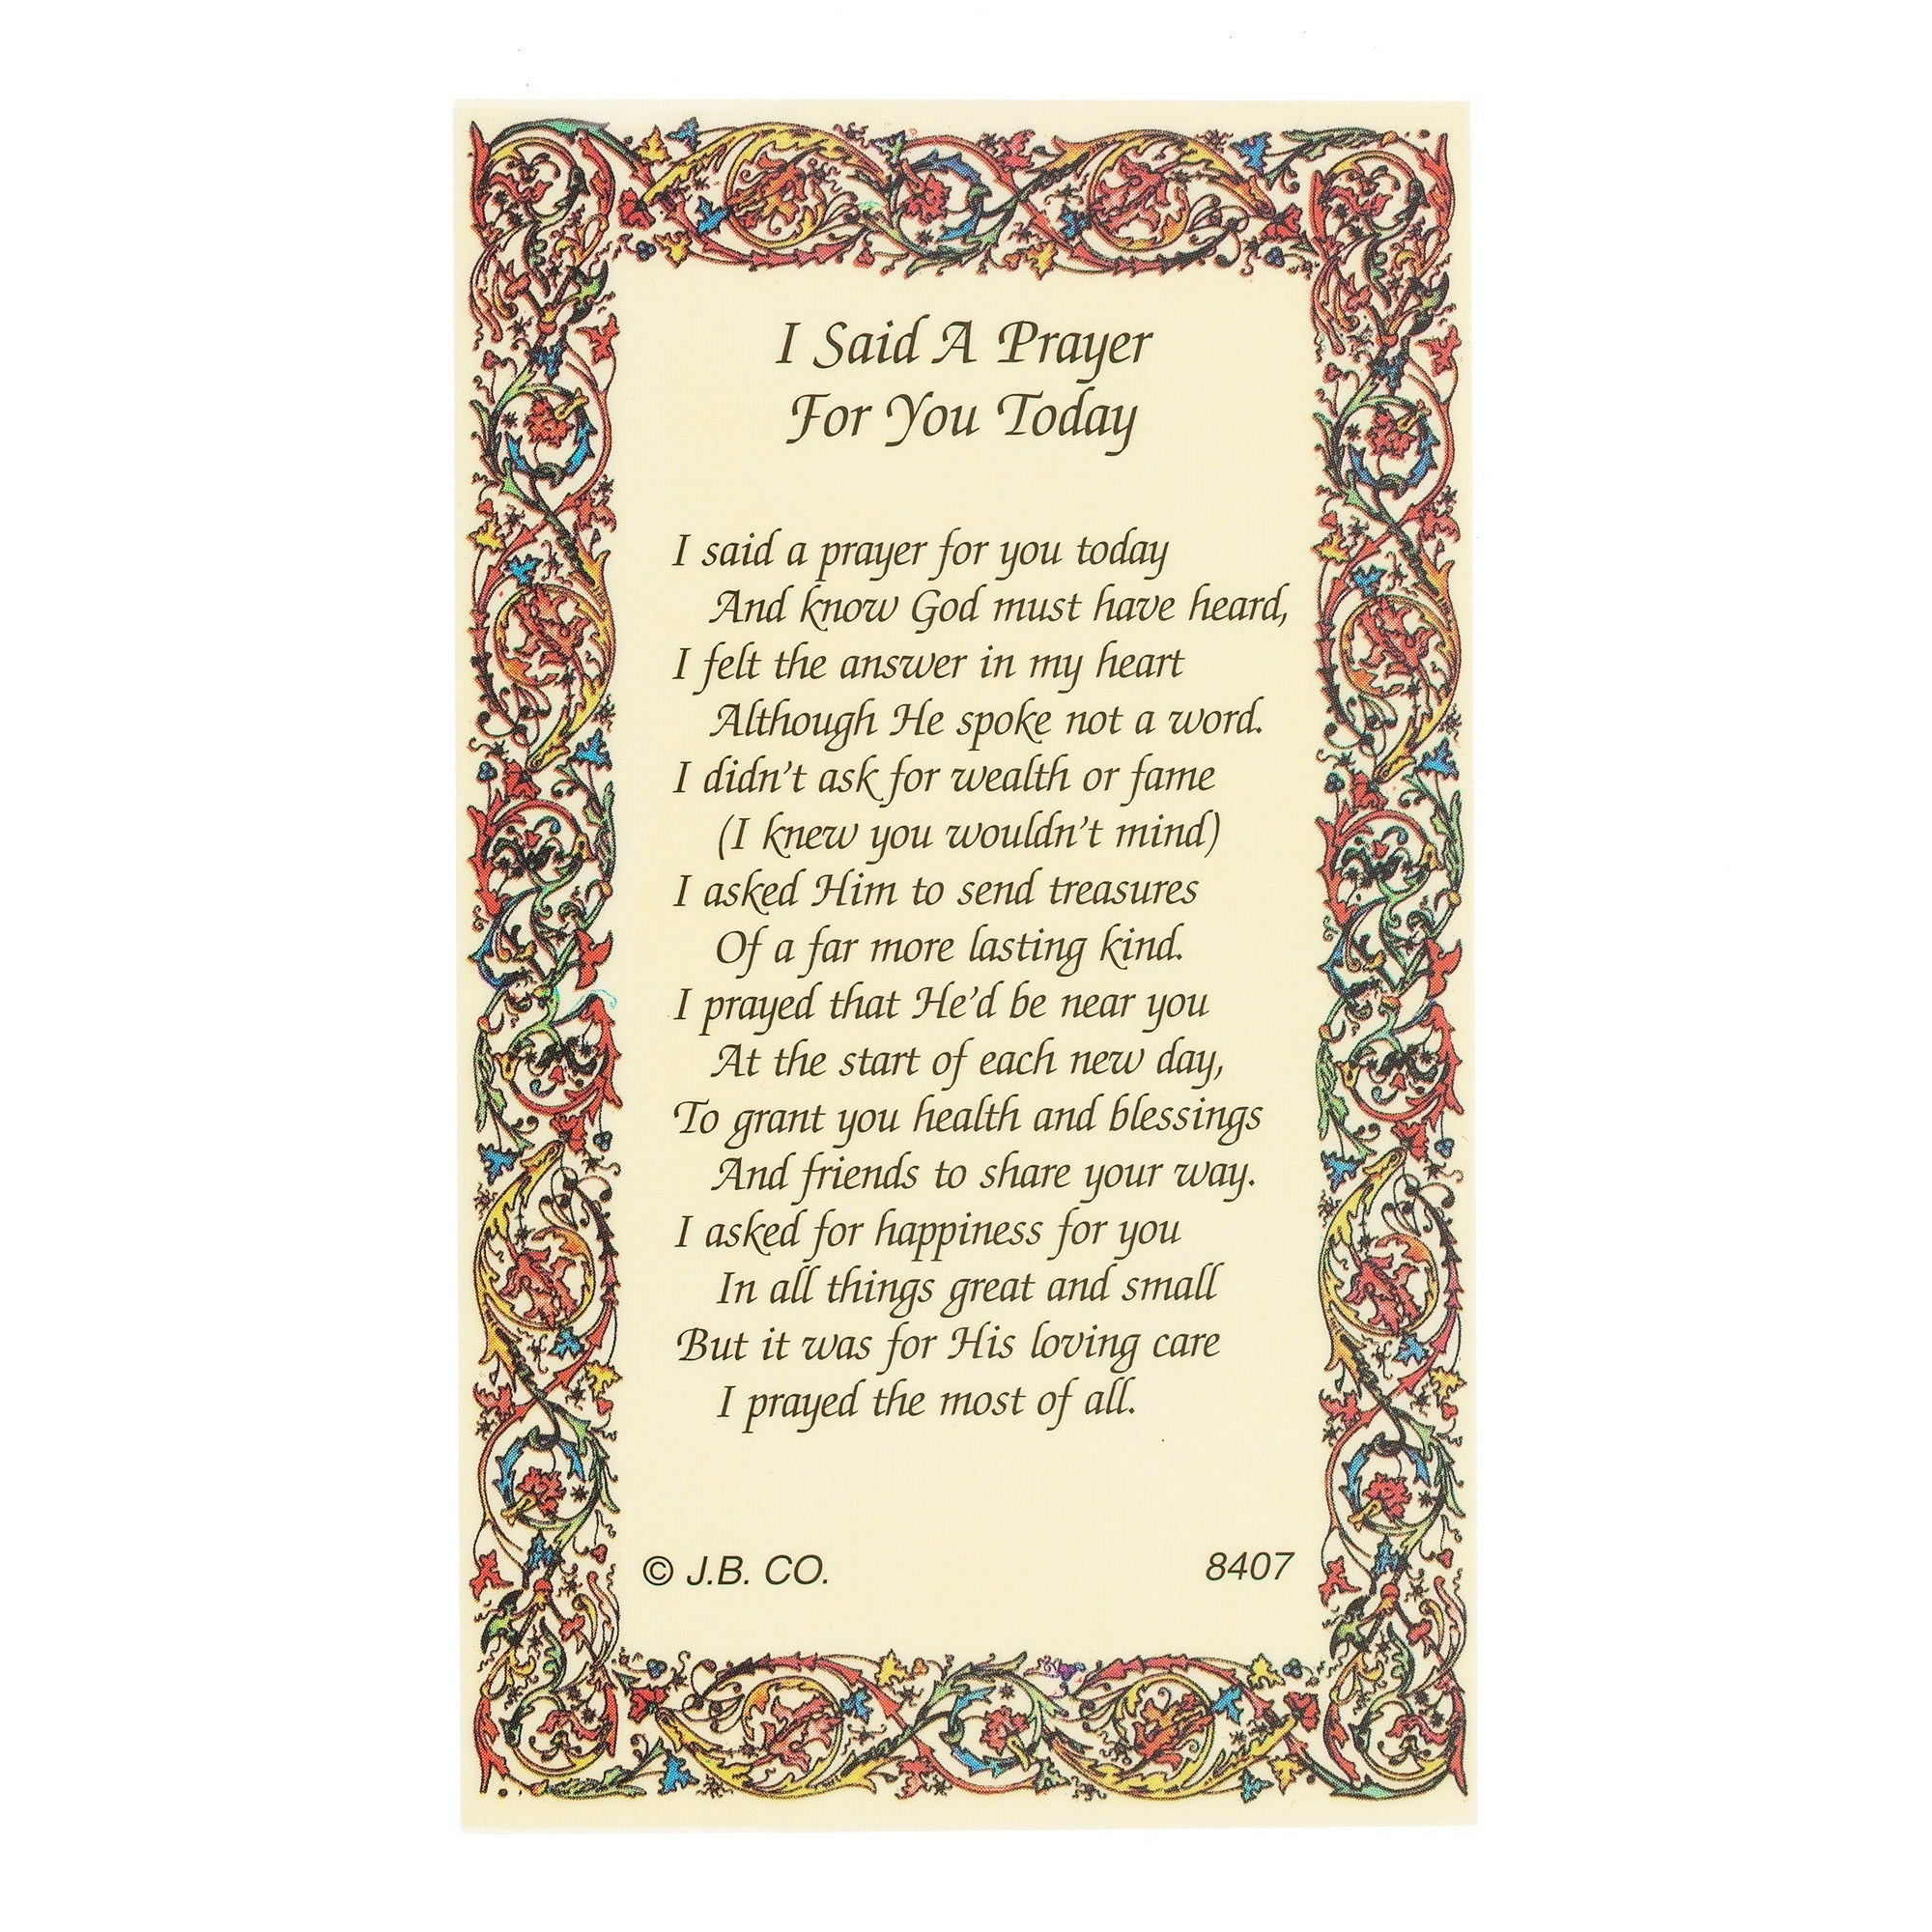 I Said A Prayer
For You Today
I said a prayer for you today
And know God must have heard,
I felt the answer in my heart
Although He spoke not a word.
I didn't ask for wealth or fame
(I knew you wouldn't mind)
I asked Him to send treasures
Of a far more lasting kind.
I prayed that He'd be near you
At the start of each new day,
To grant you health and blessings
And friends to share your way.
I asked for happiness for you
In all things great and small
But it was for His loving care
I prayed the most of all.
© J.B. CO. 8407